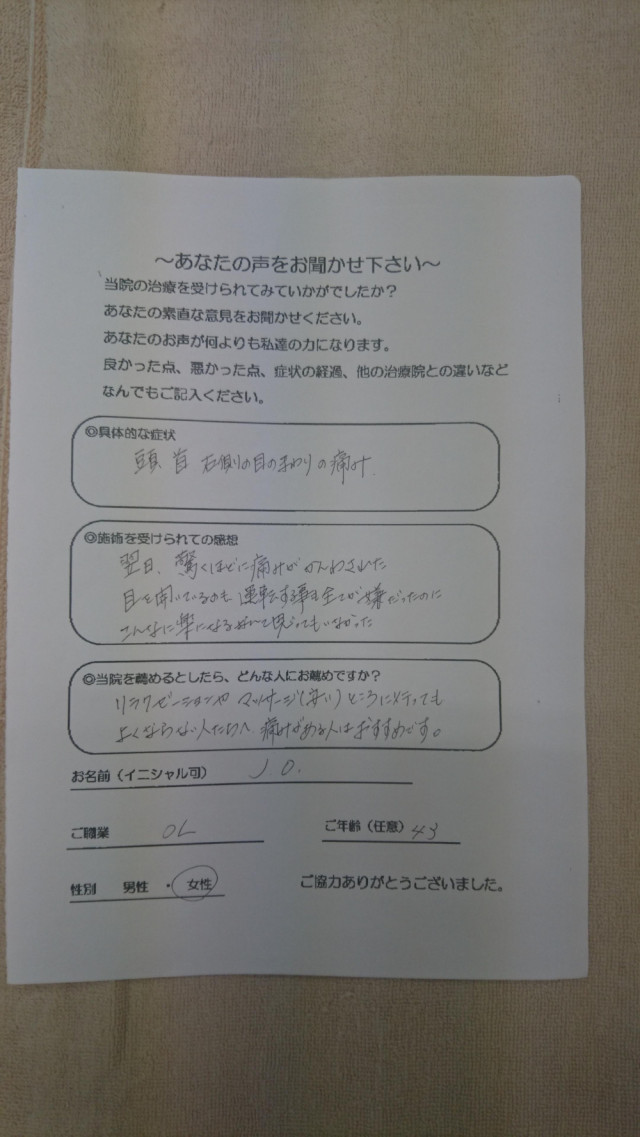 ～あなたの声をお聞かせ下さい～
当院の治療を受けられてみていかがでしたか？
あなたの素直な意見をお聞かせください。
あなたのお声が何よりも私達の力になります。
良かった点、悪かった点、症状の経過、他の治療院との違いなど
なんでもご記入ください。
◎具体的な症状
頭、首 右側の目のまわりの痛み
◎施術を受けられての感想
翌日、驚くほどに痛みがかんわされた
目を開いているのも、運転する事も全てが嫌だったのに
こんなに楽になるなんて思ってもいなかった
◎当院を薦めるとしたら、どんな人にお薦めですか？
リラクゼーションや マッサージ(安い)ところに行っても
よくならない人たちへ 痛みがある人はおすすめです。
お名前（イニシャル可） J.O.
ご職業 OL ご年齢（任意） 43
性別 男性 ・ 女性 ご協力ありがとうございました。